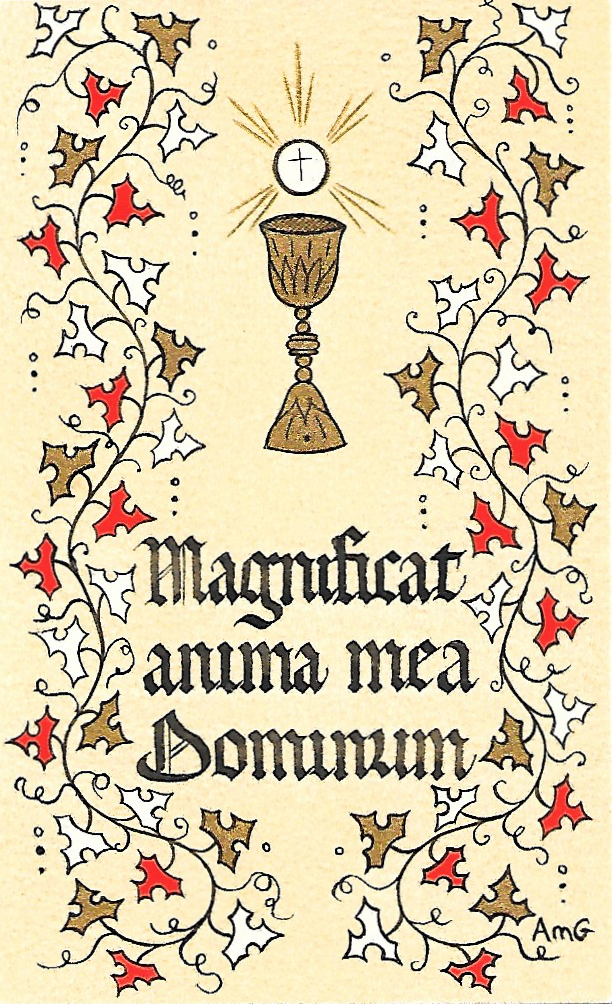 Magnificat
anima mea
Dominum
AmG